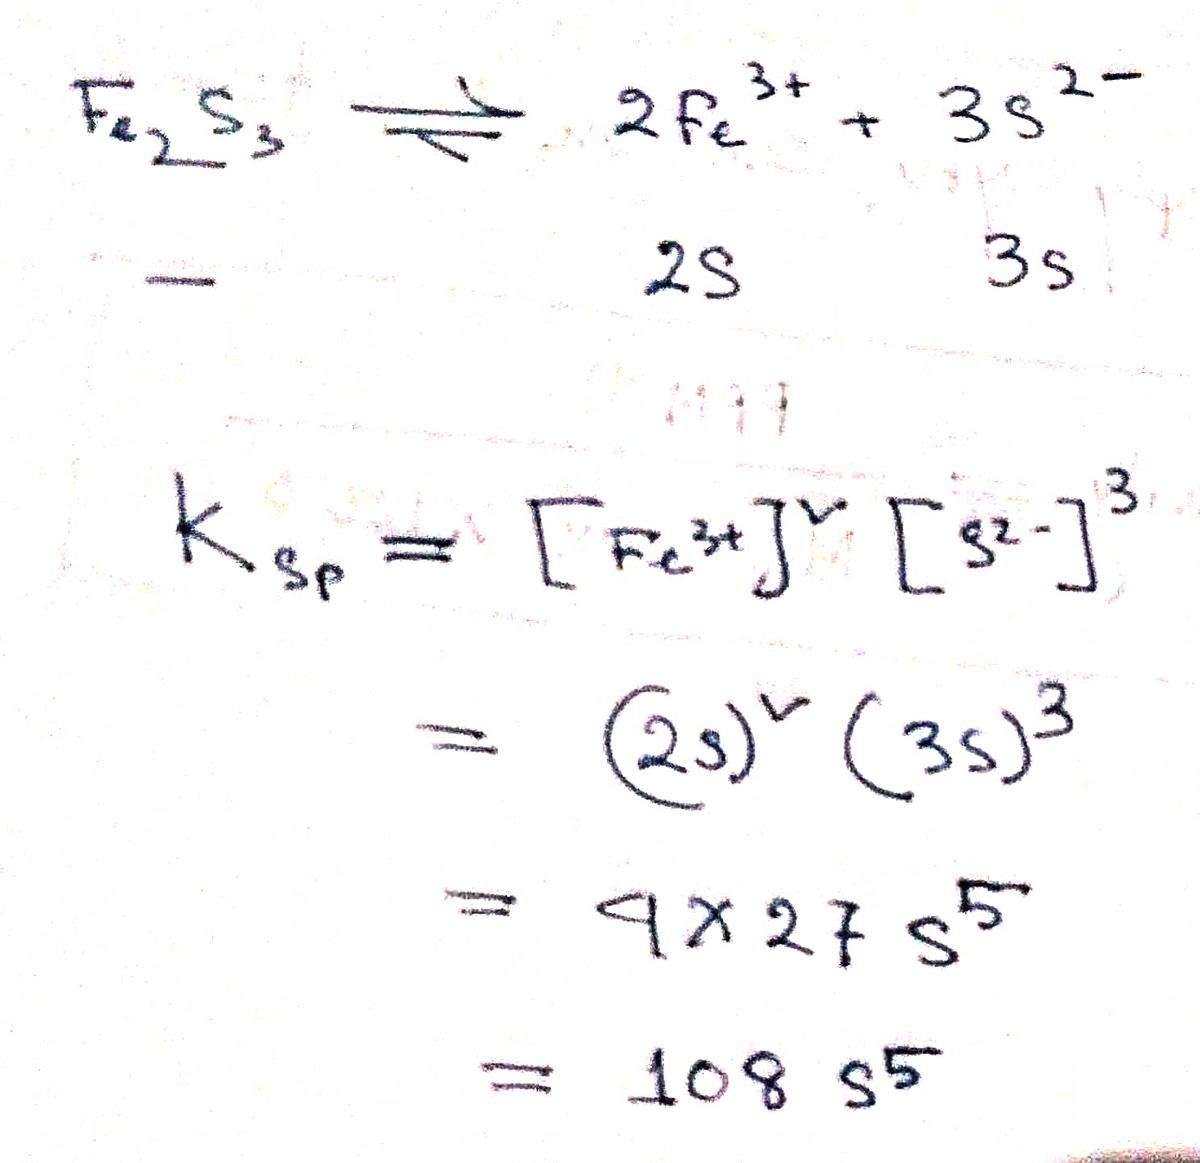 Fe₂S₃ ⇌ 2Fe³⁺ + 3S²⁻
— 2S 3S
Ksp = [Fe³⁺]² [S²⁻]³
= (2S)² (3S)³
= 4×27 S⁵
= 108 S⁵